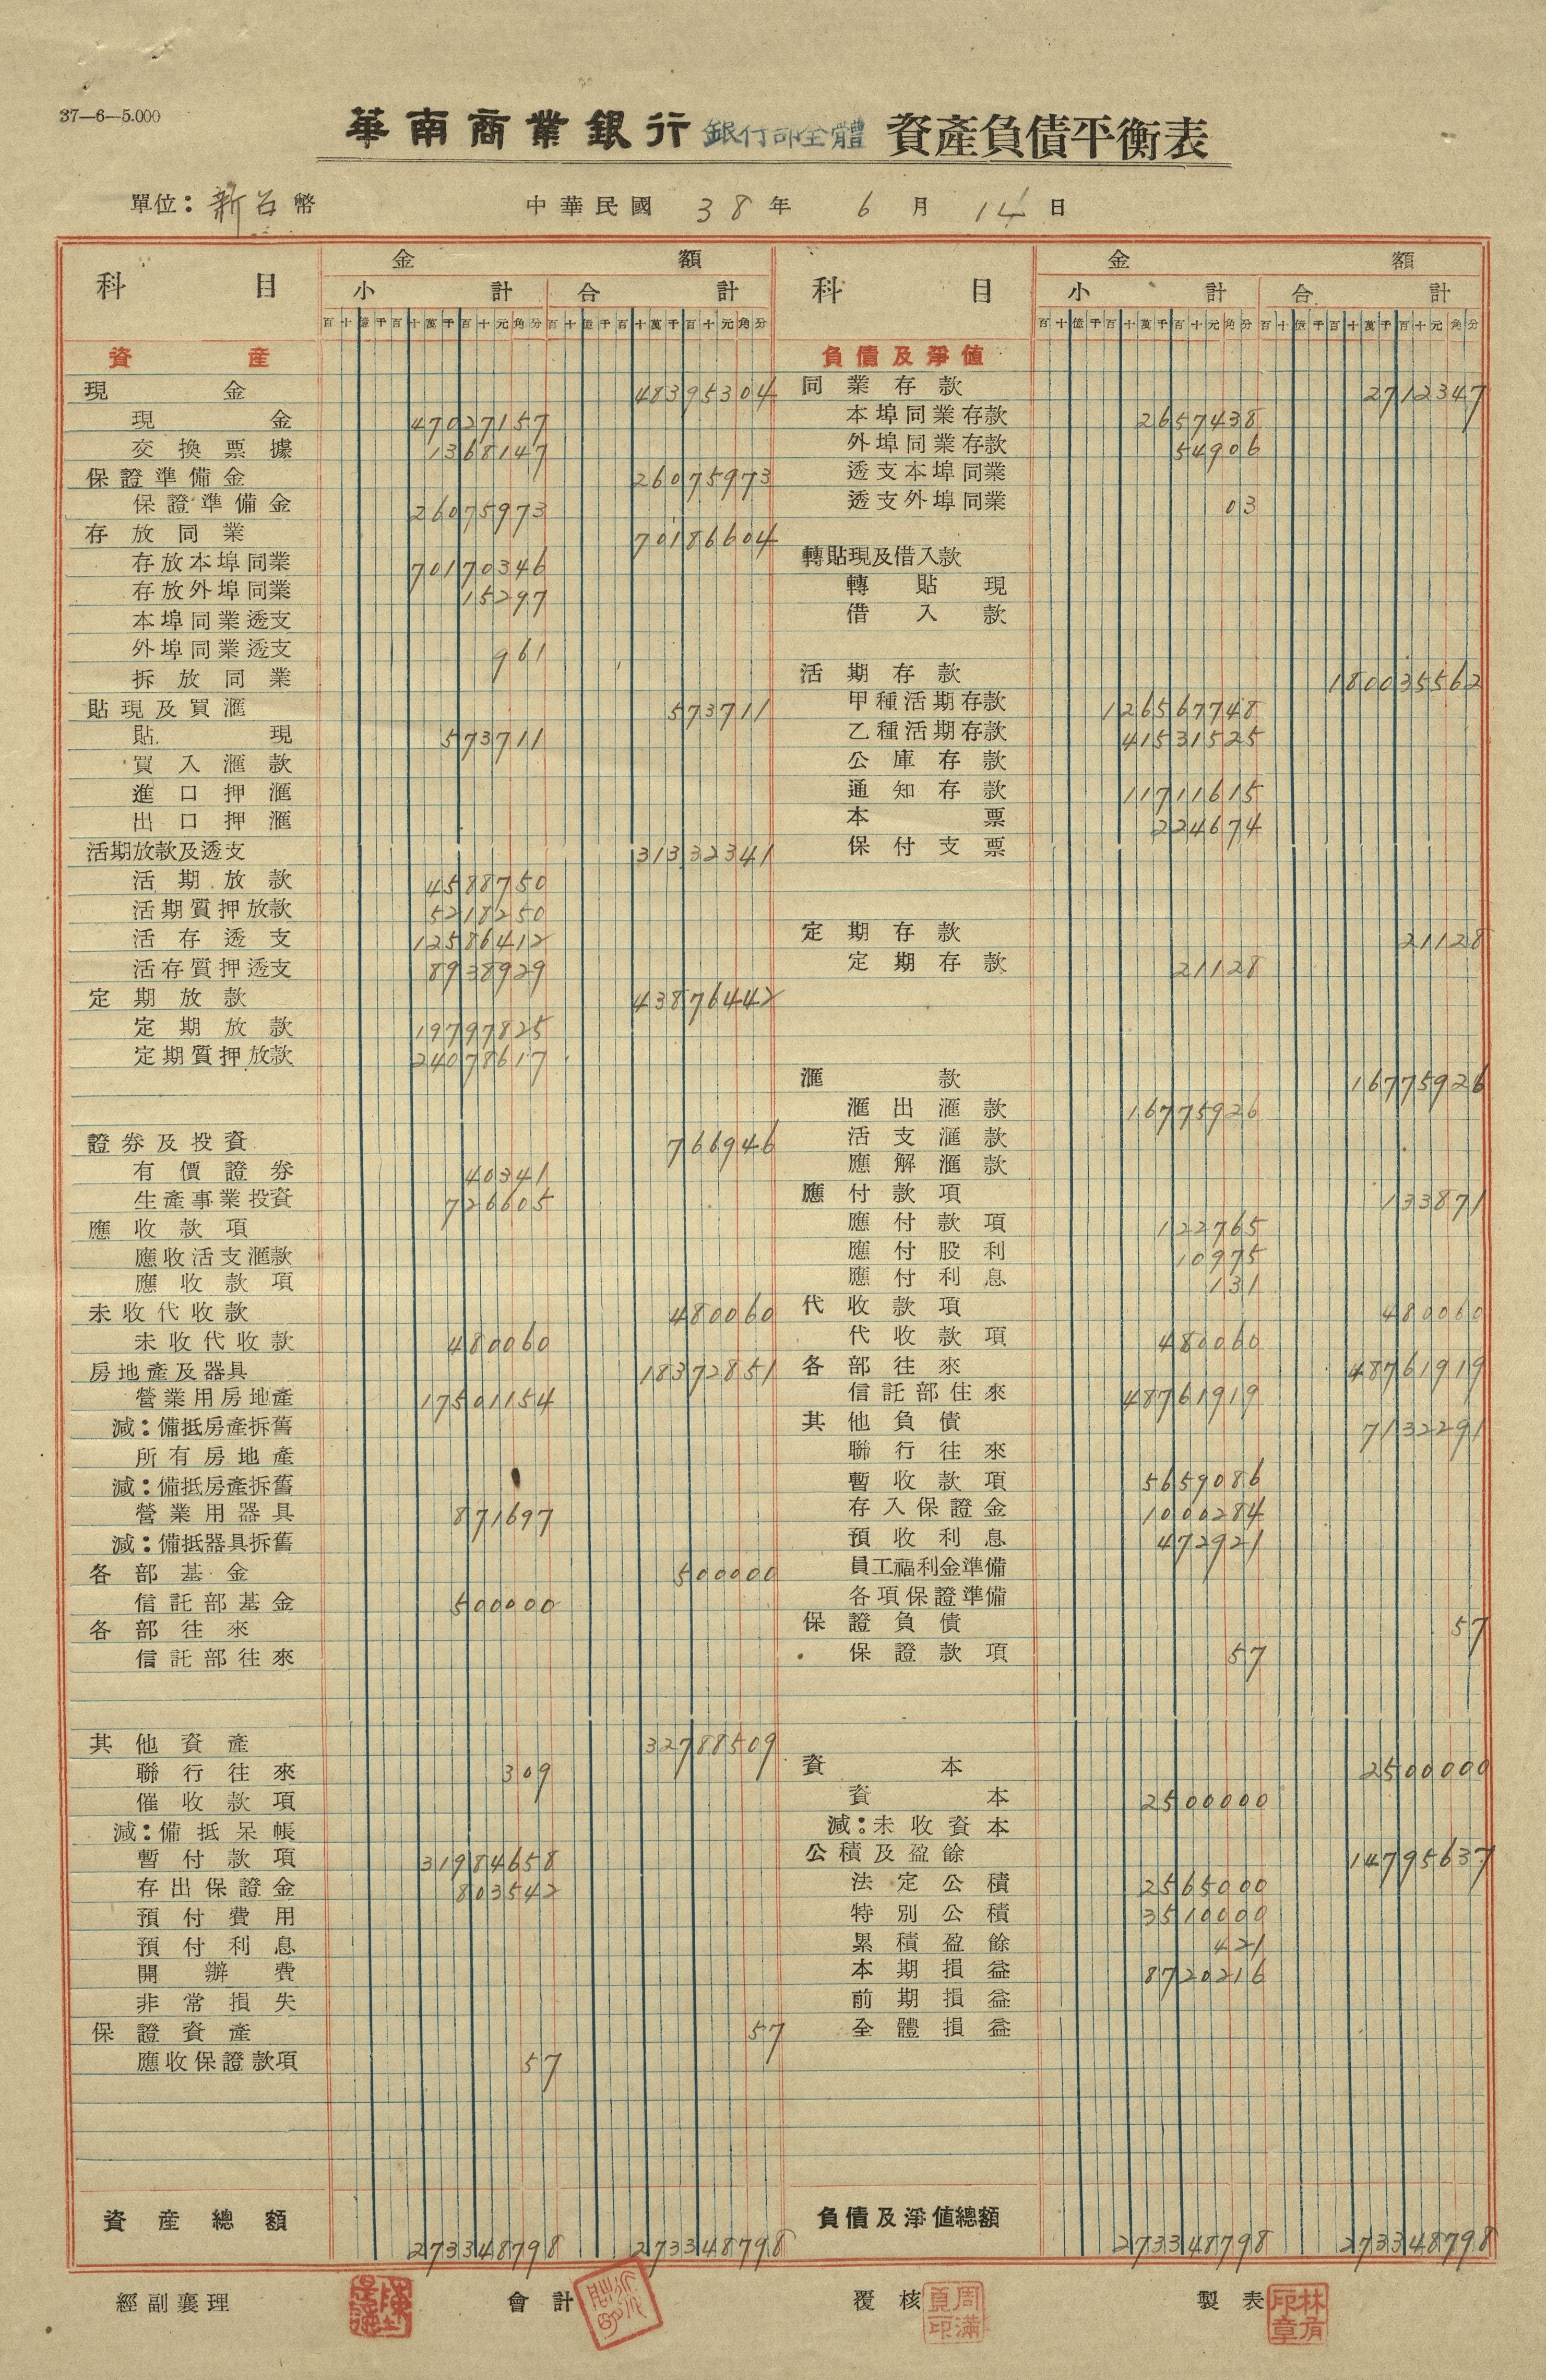 37—6—5.000
華南商業銀行 銀行部全體 資產負債平衡表
單位：新台幣 中華民國 38年 6月 14日
科目 金額 科目 金額
小計 合計 小計 合計
百十億千百十萬千百十元角分 百十億千百十萬千百十元角分 百十億千百十萬千百十元角分 百十億千百十萬千百十元角分
資產
現金 48395304
現金 47027157
交換票據 1368147
保證準備金 26075973
保證準備金 26075973
存放同業 70186604
存放本埠同業 70170346
存放外埠同業 15297
本埠同業透支
外埠同業透支 961
拆放同業
貼現及買滙 573711
貼現 573711
買入滙款
進口押滙
出口押滙
活期放款及透支 31332341
活期放款 4588750
活期質押放款 5218250
活存透支 12586412
活存質押透支 8938929
定期放款 43876442
定期放款 19797825
定期質押放款 24078617
證券及投資 766946
有價證券 40341
生產事業投資 726605
應收款項
應收活支滙款
應收款項
未收代收款 480060
未收代收款 480060
房地產及器具 18372851
營業用房地產 17501154
減：備抵房產拆舊
所有房地產
減：備抵房產拆舊
營業用器具 871697
減：備抵器具拆舊
各部基金 500000
信託部基金 500000
各部往來
信託部往來
其他資產 32788509
聯行往來 309
催收款項
減：備抵呆帳
暫付款項 31984658
存出保證金 803542
預付費用
預付利息
開辦費
非常損失
保證資產 57
應收保證款項 57
資產總額 273348798 273348798
負債及淨值
同業存款 2712347
本埠同業存款 2657438
外埠同業存款 54906
透支本埠同業
透支外埠同業 03
轉貼現及借入款
轉貼現
借入款
活期存款 180035562
甲種活期存款 126567748
乙種活期存款 41531525
公庫存款
通知存款 11711615
本票 224674
保付支票
定期存款 21128
定期存款 21128
滙款 16775926
滙出滙款 16775926
活支滙款
應解滙款
應付款項 133871
應付款項 122765
應付股利 10975
應付利息 131
代收款項 480060
代收款項 480060
各部往來 48761919
信託部往來 48761919
其他負債 7132291
聯行往來
暫收款項 5659086
存入保證金 1000284
預收利息 472921
員工福利金準備
各項保證準備
保證負債 57
保證款項 57
資本 2500000
資本 2500000
減：未收資本
公積及盈餘 14795637
法定公積 2565000
特別公積 3510000
累積盈餘 421
本期損益 8720216
前期損益
全體損益
負債及淨值總額 273348798 273348798
經副襄理 會計 覆核 製表
周滿頁印
林有印章